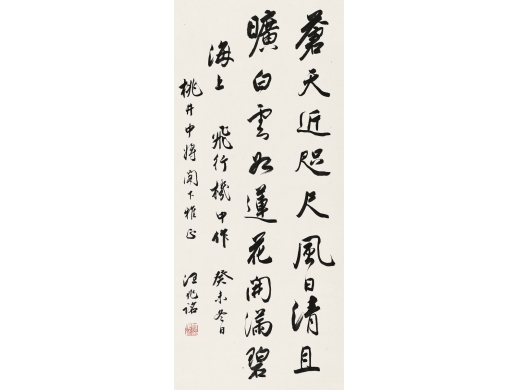 蒼天近咫尺風日清且
曠白雲如蓮花開滿碧
海上 飛行機中作 癸未冬日
桃井中將閣下雅正 汪兆銘